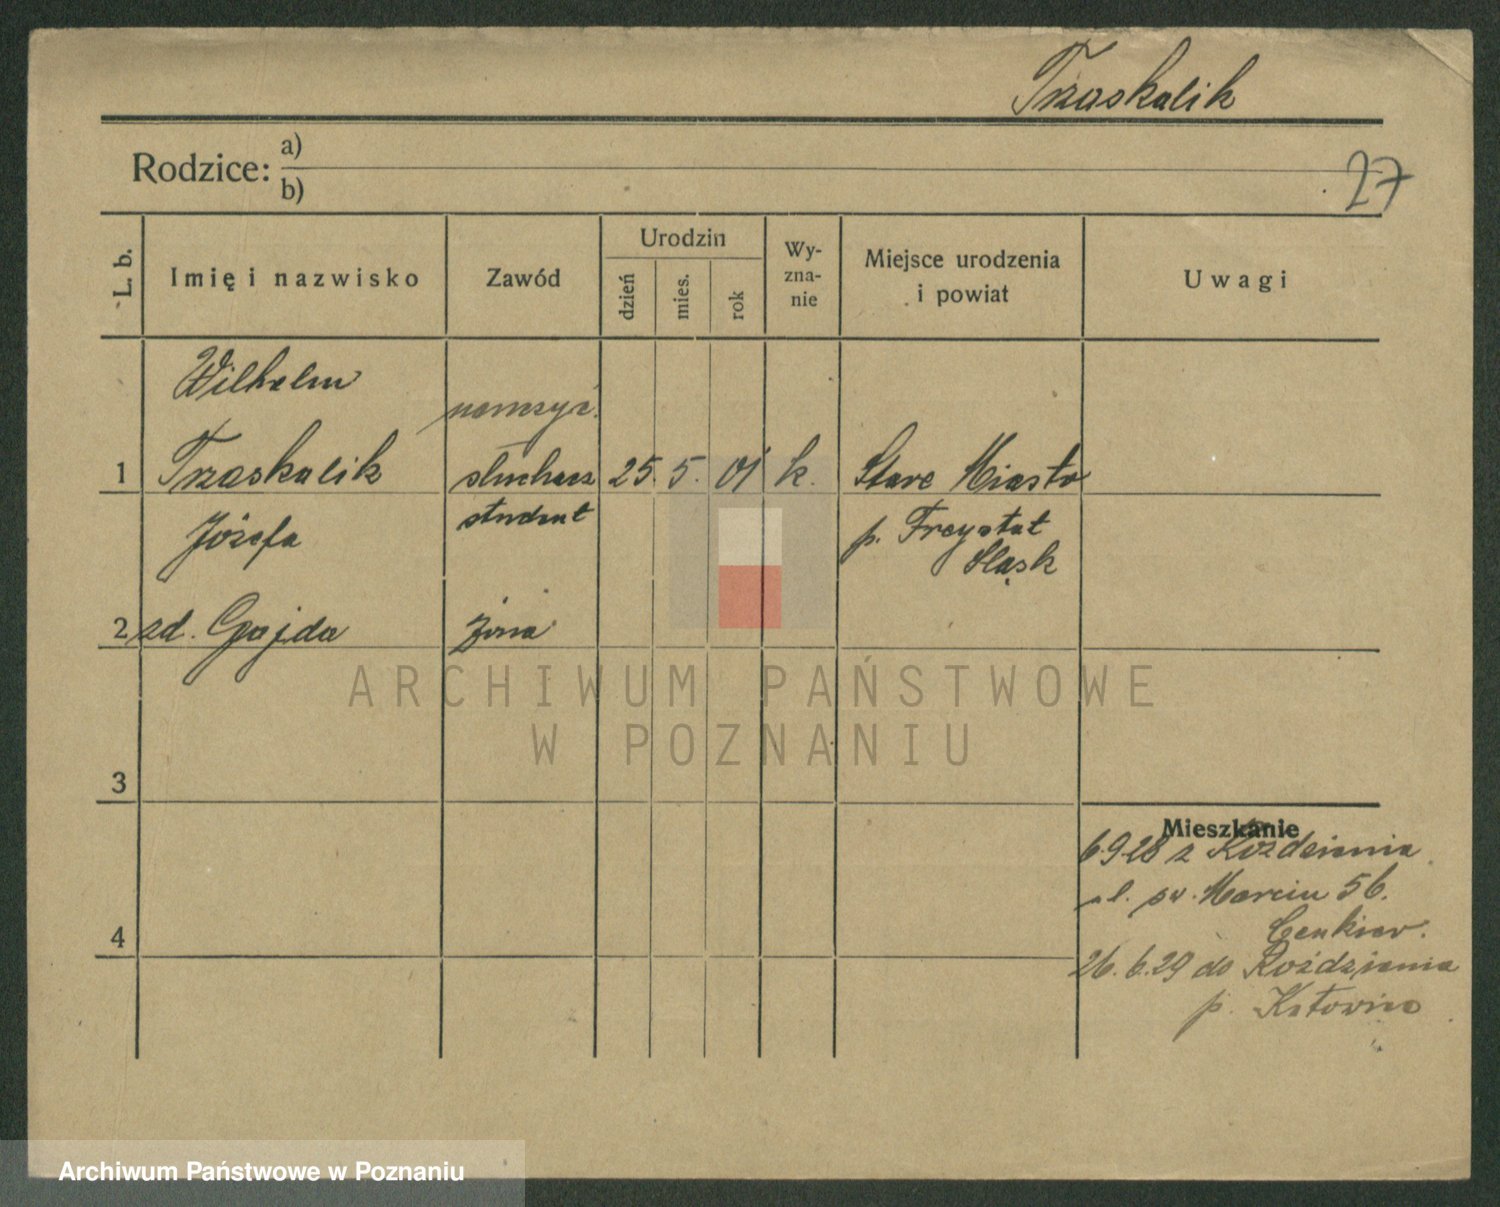 Trzaskalik
Rodzice: a)
b)
27
L. b.
Imię i nazwisko
Zawód
Urodzin
dzień
mies.
rok
Wy-
zna-
nie
Miejsce urodzenia
i powiat
Uwagi
Wilhelm
nauczyc.
1 Trzaskalik słuchacz 25. 5. 01 k. Stare Miasto
student
Józefa
p. Frysztat
Śląsk
2 zd. Gajda żona
ARCHIWUM PAŃSTWOWE
W POZNANIU
3
Mieszkanie
6.9.28 z Rożdzienia
ul. św. Marcin 56.
4
26.6.29 do Rożdzienia
p. Katowice
Archiwum Państwowe w Poznaniu